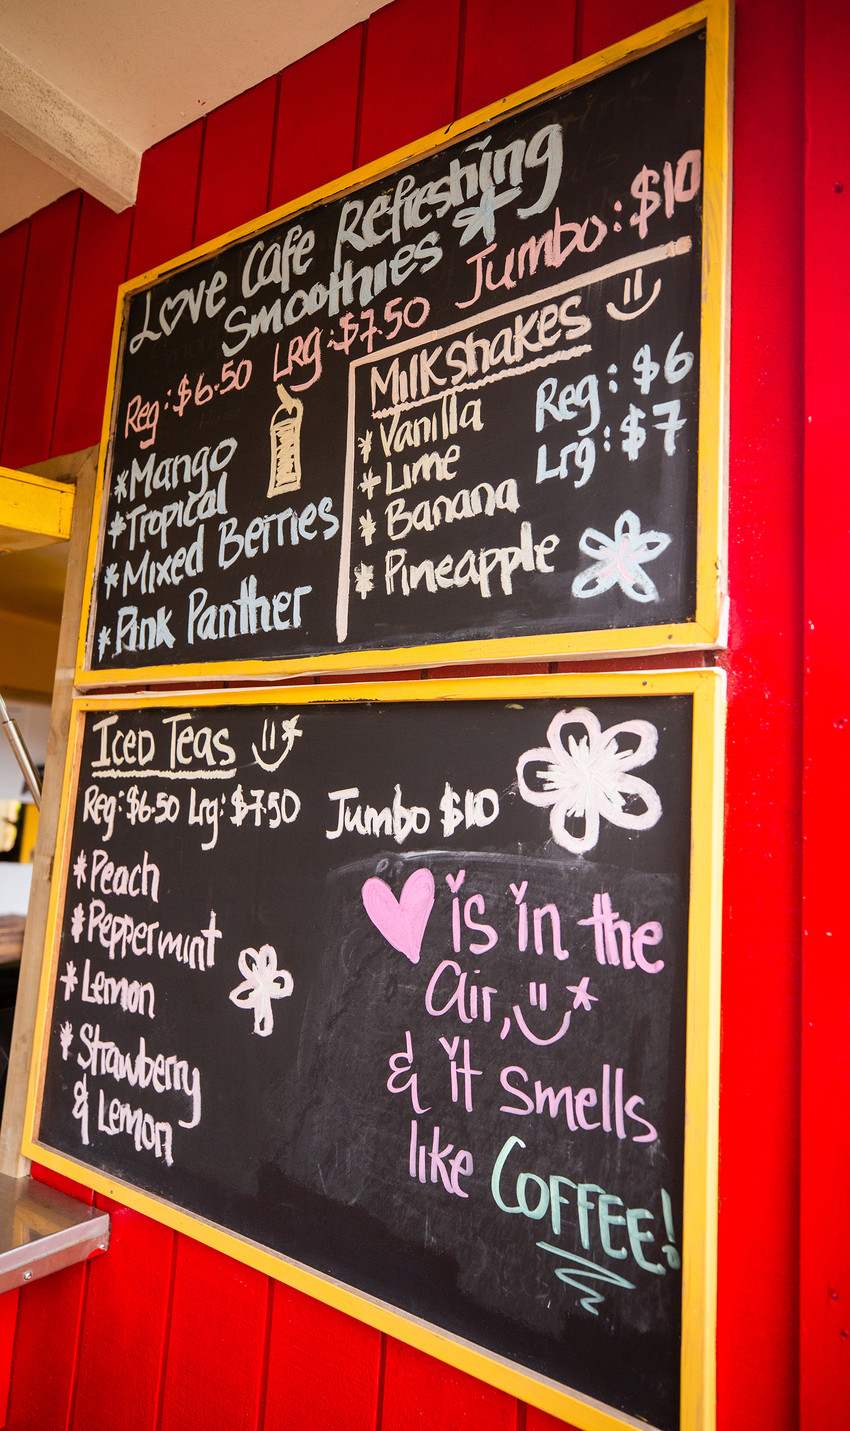 Love Cafe Refreshing
Smoothies
Reg: $6.50 Lrg: $7.50 Jumbo: $10
*Mango
*Tropical
*Mixed Berries
*Pink Panther
Milkshakes
*Vanilla
*Lime
*Banana
*Pineapple
Reg: $6
Lrg: $7
Iced Teas
Reg: $6.50 Lrg: $7.50 Jumbo $10
*Peach
*Peppermint
*Lemon
*Strawberry
& Lemon
is in the
air,
& it smells
like COFFEE!